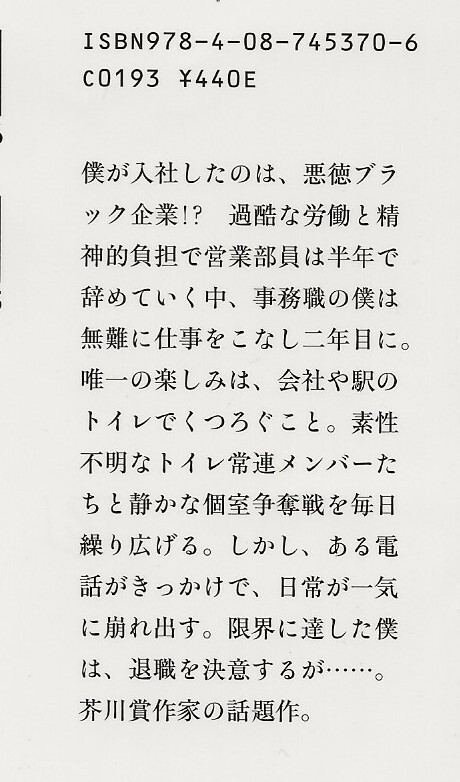 ISBN978-4-08-745370-6
C0193 ¥440E
僕が入社したのは、悪徳ブラ
ック企業!? 過酷な労働と精
神的負担で営業部員は半年で
辞めていく中、事務職の僕は
無難に仕事をこなし二年目に。
唯一の楽しみは、会社や駅の
トイレでくつろぐこと。素性
不明なトイレ常連メンバーた
ちと静かな個室争奪戦を毎日
繰り広げる。しかし、ある電
話がきっかけで、日常が一気
に崩れ出す。限界に達した僕
は、退職を決意するが……。
芥川賞作家の話題作。